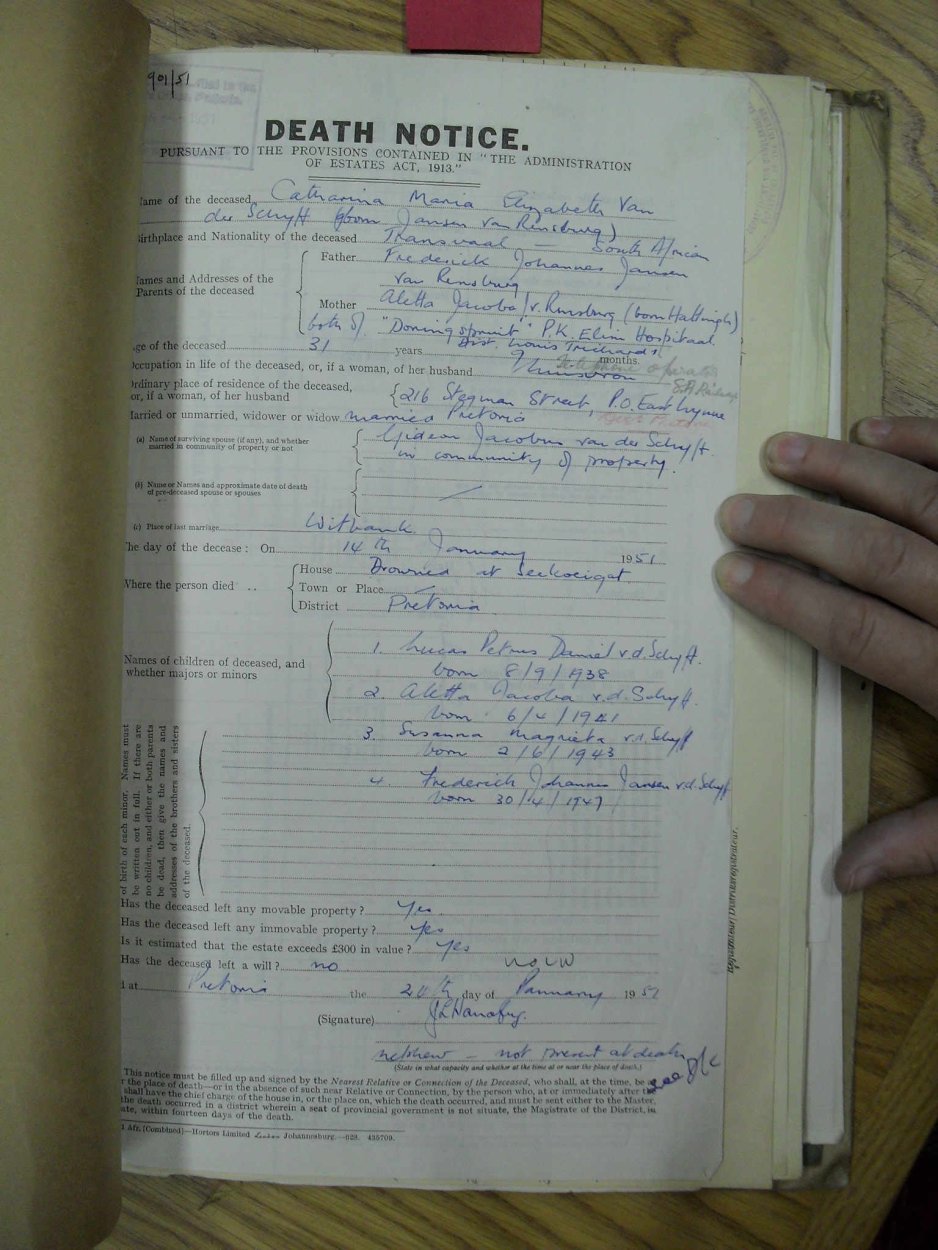 901/51
DEATH NOTICE.
PURSUANT TO THE PROVISIONS CONTAINED IN "THE ADMINISTRATION
OF ESTATES ACT, 1913."
ame of the deceased Catharina Maria Elizabeth Van
der Schyff (born Jansen van Rensburg)
irthplace and Nationality of the deceased Transvaal — South African
ames and Addresses of the
Parents of the deceased
Father Frederick Johannes Jansen
van Rensburg
Mother Aletta Jacoba J v. Rensburg (born Hattingh)
both of "Doringspruit" P.K. Elim Hospitaal
ge of the deceased 31 years Dist. Louis Trichardt months.
ccupation in life of the deceased, or, if a woman, of her husband Telephone operator
S.A. Railways
rdinary place of residence of the deceased,
or, if a woman, of her husband 216 Stegman Street, P.O. East Lynne
arried or unmarried, widower or widow married Pretoria
(a) Name of surviving spouse (if any), and whether
married in community of property or not
Gideon Jacobus van der Schyff.
in community of property.
(b) Name or Names and approximate date of death
of pre-deceased spouse or spouses
(c) Place of last marriage Witbank.
he day of the decease: On 14th January 1951
Where the person died ..
House Drowned at Seekoeigat
Town or Place
District Pretoria
Names of children of deceased, and
whether majors or minors
1. Lucas Petrus Daniel v.d. Schyff.
born 8/9/1938
2. Aletta Jacoba v.d. Schyff
born 6/4/1941
3. Susanna Magrieta v.d. Schyff
born 2/6/1943
4. Frederick Johannes Jansen v.d. Schyff
born 30/4/1947
of birth of each minor. Names must
be written out in full. If there are
no children, and either or both parents
be dead, then give the names and
addresses of the brothers and sisters
of the deceased.
Has the deceased left any movable property? Yes
Has the deceased left any immovable property? Yes
Is it estimated that the estate exceeds £300 in value? Yes
Has the deceased left a will? no
at Pretoria the day of January 1951
(Signature)
nephew — not present at death
(State in what capacity and whether at the time at or near the place of death.)
This notice must be filled up and signed by the Nearest Relative or Connection of the Deceased, who shall, at the time, be a
the place of death—or in the absence of such near Relative or Connection, by the person who, at or immediately after the
shall have the chief charge of the house in, or the place on, which the death occurred, and must be sent either to the Master,
the death occurred in a district wherein a seat of provincial government is not situate, the Magistrate of the District, in
ate, within fourteen days of the death.
Afr. [Combined]—Hortors Limited London Johannesburg.—029. 435709.
Registrateur/Distriksregistrateur.